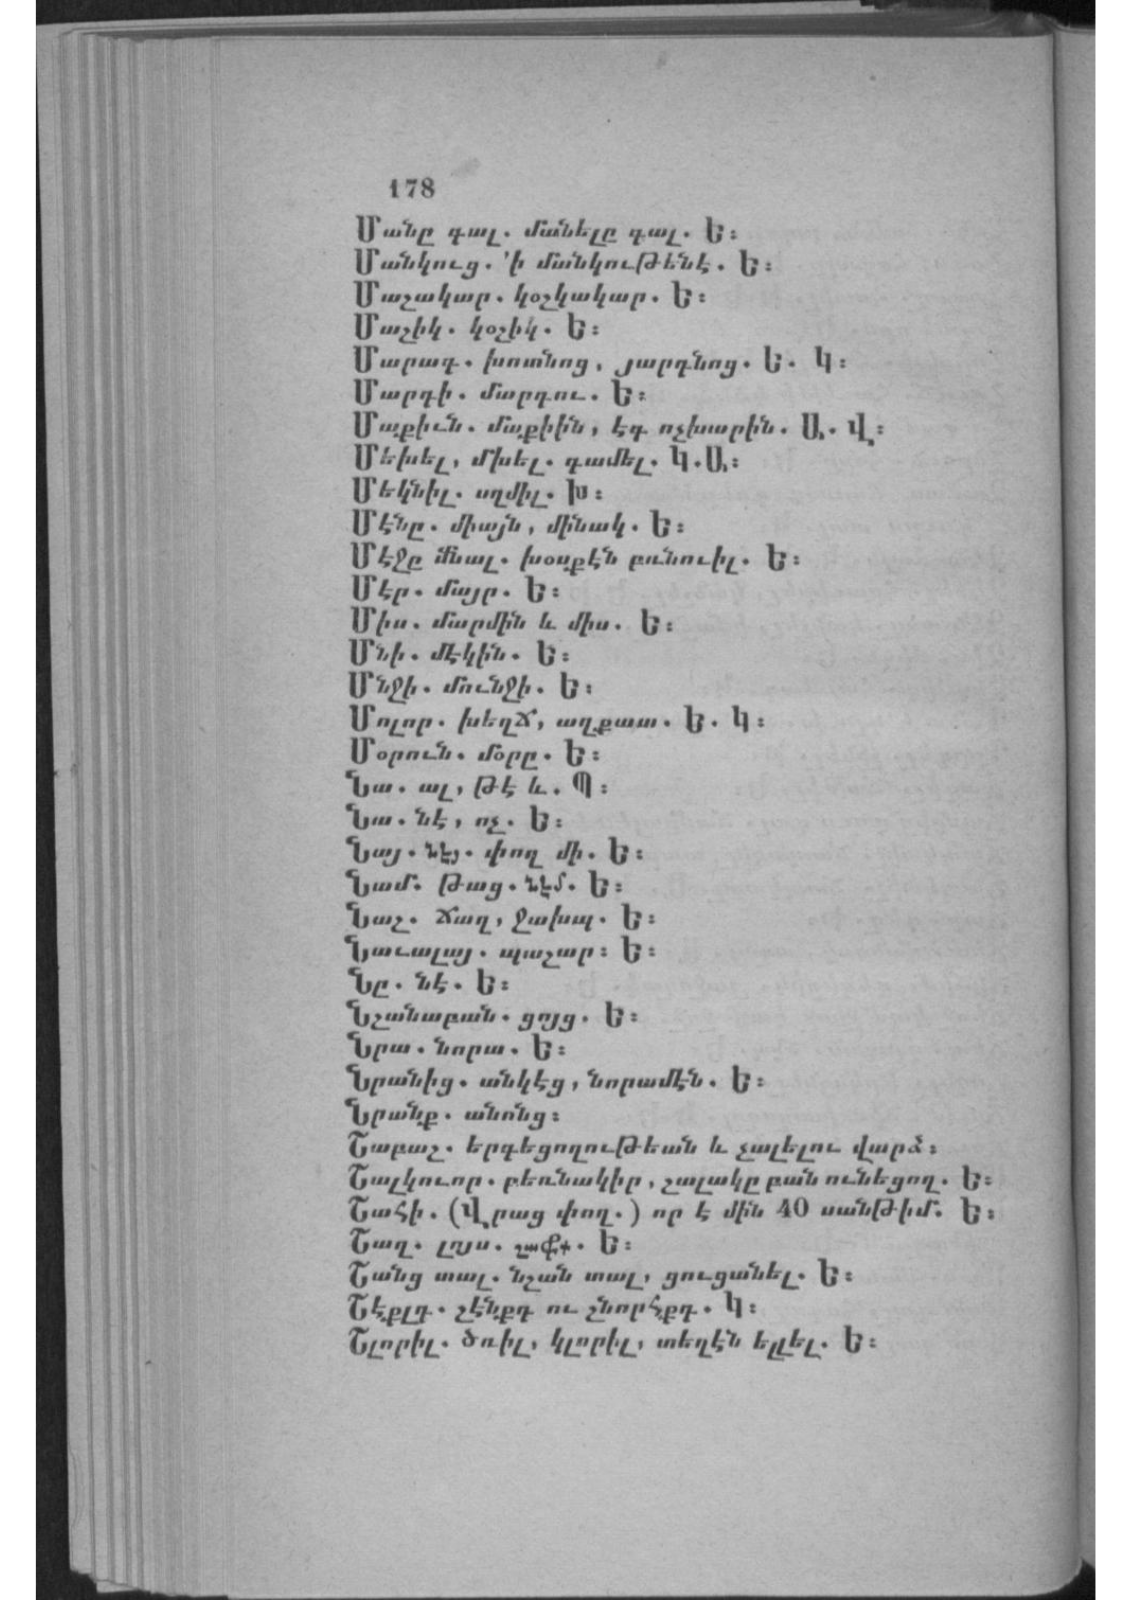 178
Մանը գալ. մանելը գալ. Ե։
Մանկուց. 'ի մանկութենէ. Ե։
Մաշակար. կօշկակար. Ե։
Մաշիկ. կօշիկ. Ե։
Մարագ. խոտնոց, յարդնոց. Ե. Կ։
Մարդի. մարդու. Ե։
Մաքիւն. մաքիին, էգ ոչխարին. Ա. Վ։
Մեխել, մխել. գամել. Կ.Ա։
Մեկնիլ. սղմիլ. Խ։
Մէնը. միայն, մինակ. Ե։
Մէջը մնալ. խօսքէն բռնուիլ. Ե։
Մէր. մայր. Ե։
Միս. մարմին և միս. Ե։
Մնի. մէկին. Ե։
Մնջի. մունջի. Ե։
Մոլոր. խեղճ, աղքատ. Ե. Կ։
Մօրուն. մօրը. Ե։
Նա. ալ, թէ և. Պ։
Նա. նէ, ոչ. Ե։
Նայ. նէյ. փող մի. Ե։
Նամ. թաց. նէմ. Ե։
Նաշ. ճաղ, ջախսպ. Ե։
Նաւալայ. պաշար։ Ե։
Նը. նէ. Ե։
Նշանաբան. ցոյց. Ե։
Նրա. նորա. Ե։
Նրանից. անկէց, նորամէն. Ե։
Նրանք. անոնց։
Շաբաշ. երգեցողութեան և չալելու վարձ։
Շալկուոր. բեռնակիր, շալակը բան ունեցող. Ե։
Շահի. (Վրաց փող.) որ է մին 40 սանթիմ. Ե։
Շաղ. լոյս. Ե։
Շանց տալ. նշան տալ, ցուցանել. Ե։
Շէքլդ. շէնքդ ու շնորհքդ. Կ։
Շլորիլ. ծռիլ, կլորիլ, տեղէն ելլել. Ե։